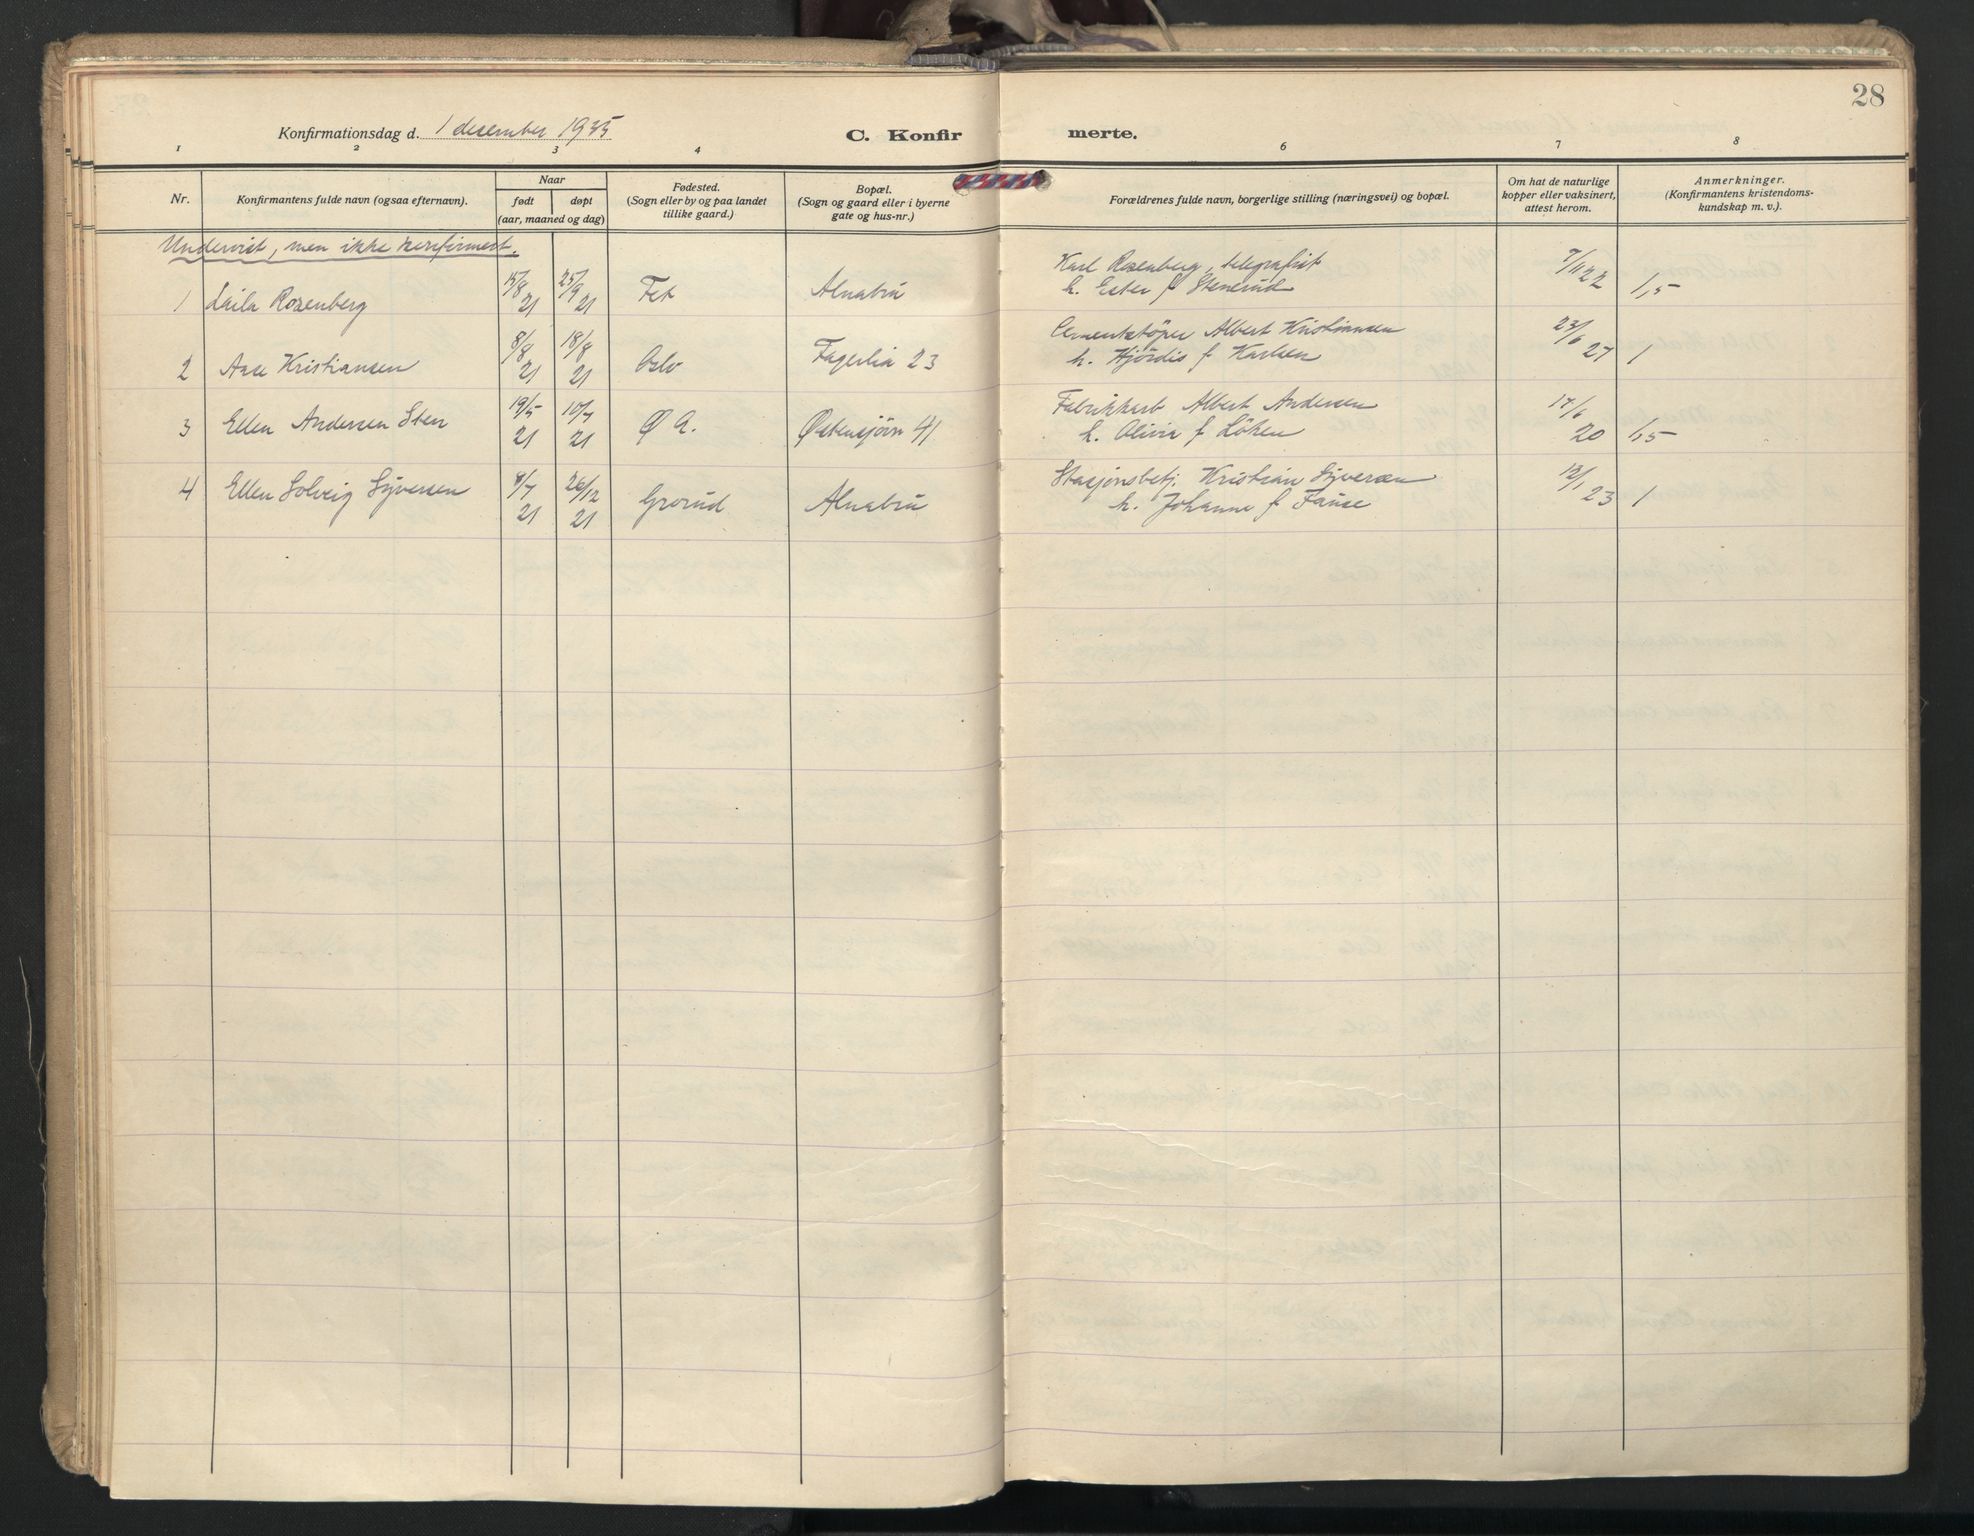 28
Konfirmationsdag d. 1 desember 1935
C. Konfirmerte.
1 2 3 4 6 7 8
Nr.
Konfirmantens fulde navn (ogsaa efternavn).
Naar
født døpt
(aar, maaned og dag)
Fødested.
(Sogn eller by og paa landet
tillike gaard.)
Bopæl.
(Sogn og gaard eller i byerne
gate og hus-nr.)
Forældrenes fulde navn, borgerlige stilling (næringsvei) og bopæl.
Om hat de naturlige
kopper eller vaksinert,
attest herom.
Anmerkninger.
(Konfirmantens kristendoms-
kundskap m. v.).
Undervist, men ikke konfirmert.
1 Laila Rosenberg 15/8 21 25/9 21 Fet Alnabru
Karl Rosenberg, telegrafist
h. Ester f Stenerud 7/11 22 1,5
2 Aase Kristiansen 8/8 21 18/8 21 Oslo Fagerlia 23
Cementstöper Albert Kristiansen
h. Hjördis f. Karlsen 23/6 27 1
3 Ellen Andersen Sten 19/5 21 10/7 21 Ø A. Østensjøvn 41
Fabrikkarb Albert Andersen
h. Olivia f. Löken 17/6 20 1,5
4 Ellen Solveig Syversen 8/7 21 26/12 21 Grorud Alnabru
Stasjonsbetj. Kristian Syversen
h. Johanne f. 12/1 23 1